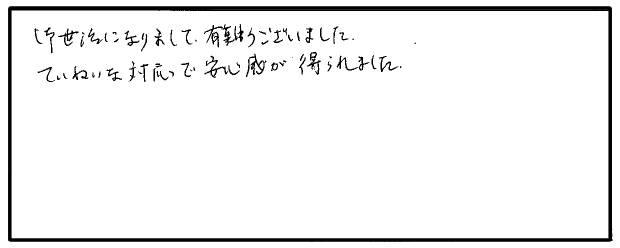 御世話になりまして、有難うございました。
ていねいな対応で安心感が得られました。